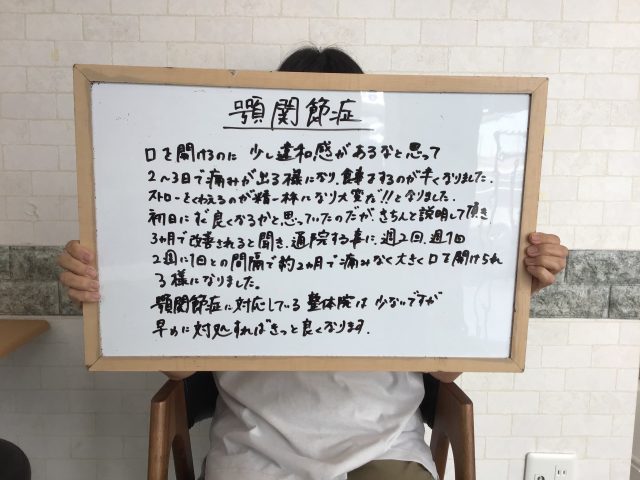 顎関節症
口を開けるのに 少し違和感があるなと思って
2〜3日で痛みが出る様になり、食事するのが辛くなりました。
ストローをくわえるのが精一杯になり大変だ!!となりました。
初日にすぐ良くなるかと思っていたのだが、きちんと説明して頂き
3ヵ月で改善されると聞き、通院する事に、週2回、週1回
2週に1回との間隔で約2ヵ月で痛みなく大きく口を開けられ
る様になりました。
顎関節症に対応している整体院は少ないですが
早めに対処すればきっと良くなります。